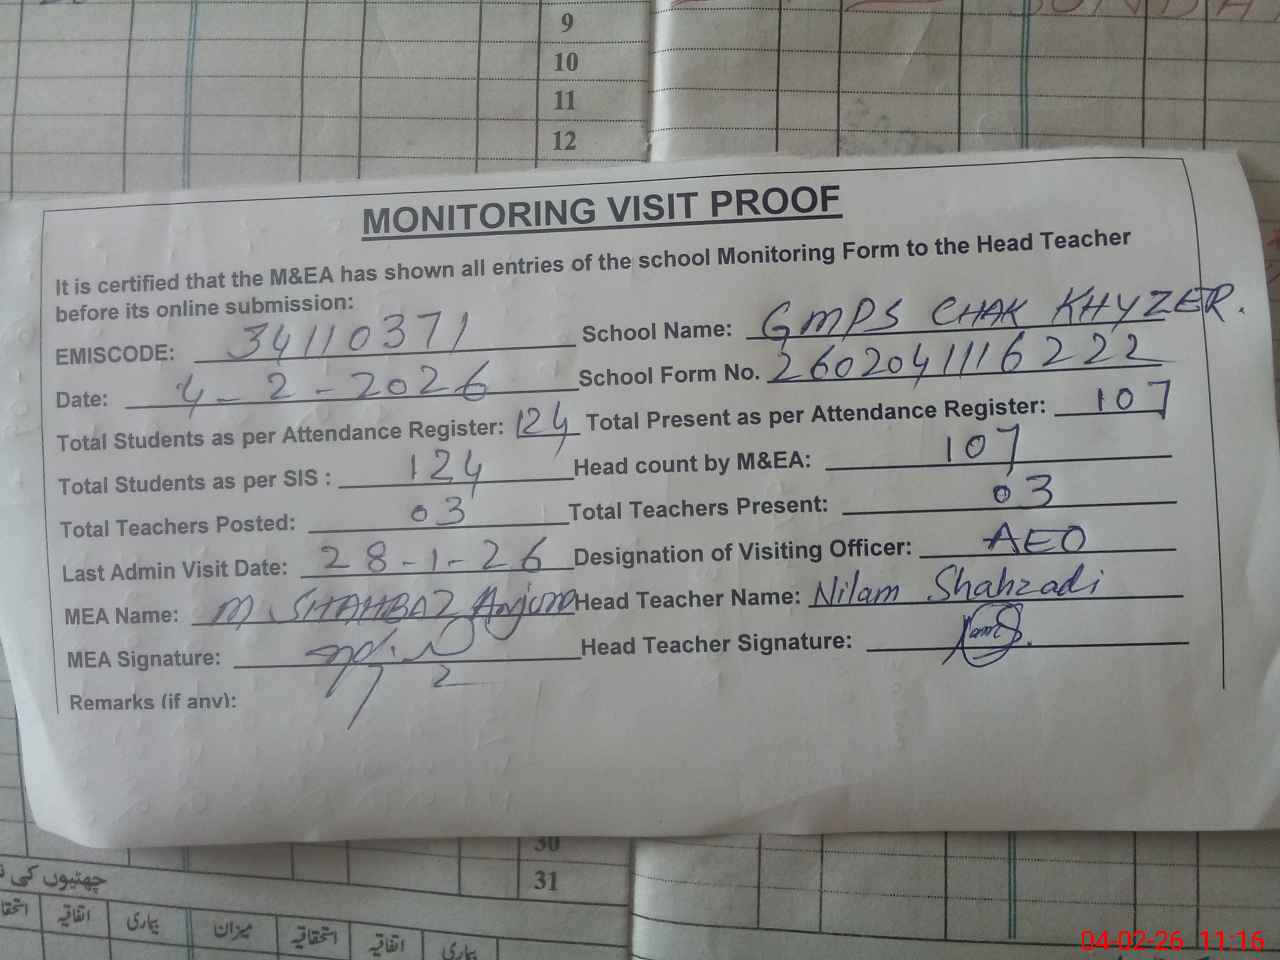 9
10
11
12
MONITORING VISIT PROOF
It is certified that the M&EA has shown all entries of the school Monitoring Form to the Head Teacher
before its online submission:
EMISCODE: 34110371 School Name: GMPS CHAK KHYZER.
Date: 4-2-2026 School Form No. 2602041116222
Total Students as per Attendance Register: 124 Total Present as per Attendance Register: 107
Total Students as per SIS : 124 Head count by M&EA: 107
Total Teachers Posted: 03 Total Teachers Present: 03
Last Admin Visit Date: 28-1-26 Designation of Visiting Officer: AEO
MEA Name: M SHAHBAZ Anjum Head Teacher Name: Nilam Shahzadi
MEA Signature: Head Teacher Signature:
Remarks (if any):
30
31
چھٹیوں کی
اتفاقیہ بیماری میزان استحقاقیہ اتفاقیہ بیماری
04-02-26 11:16